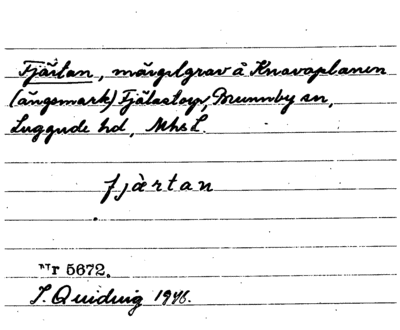 Fjärtan, märgelgrav å Knavaplanen
(ängsmark) Fjälastorp, Brunnby sn,
Luggude hd, Mhs L.
fjàrtan
Nr 5672.
J. Quidvig 1946.